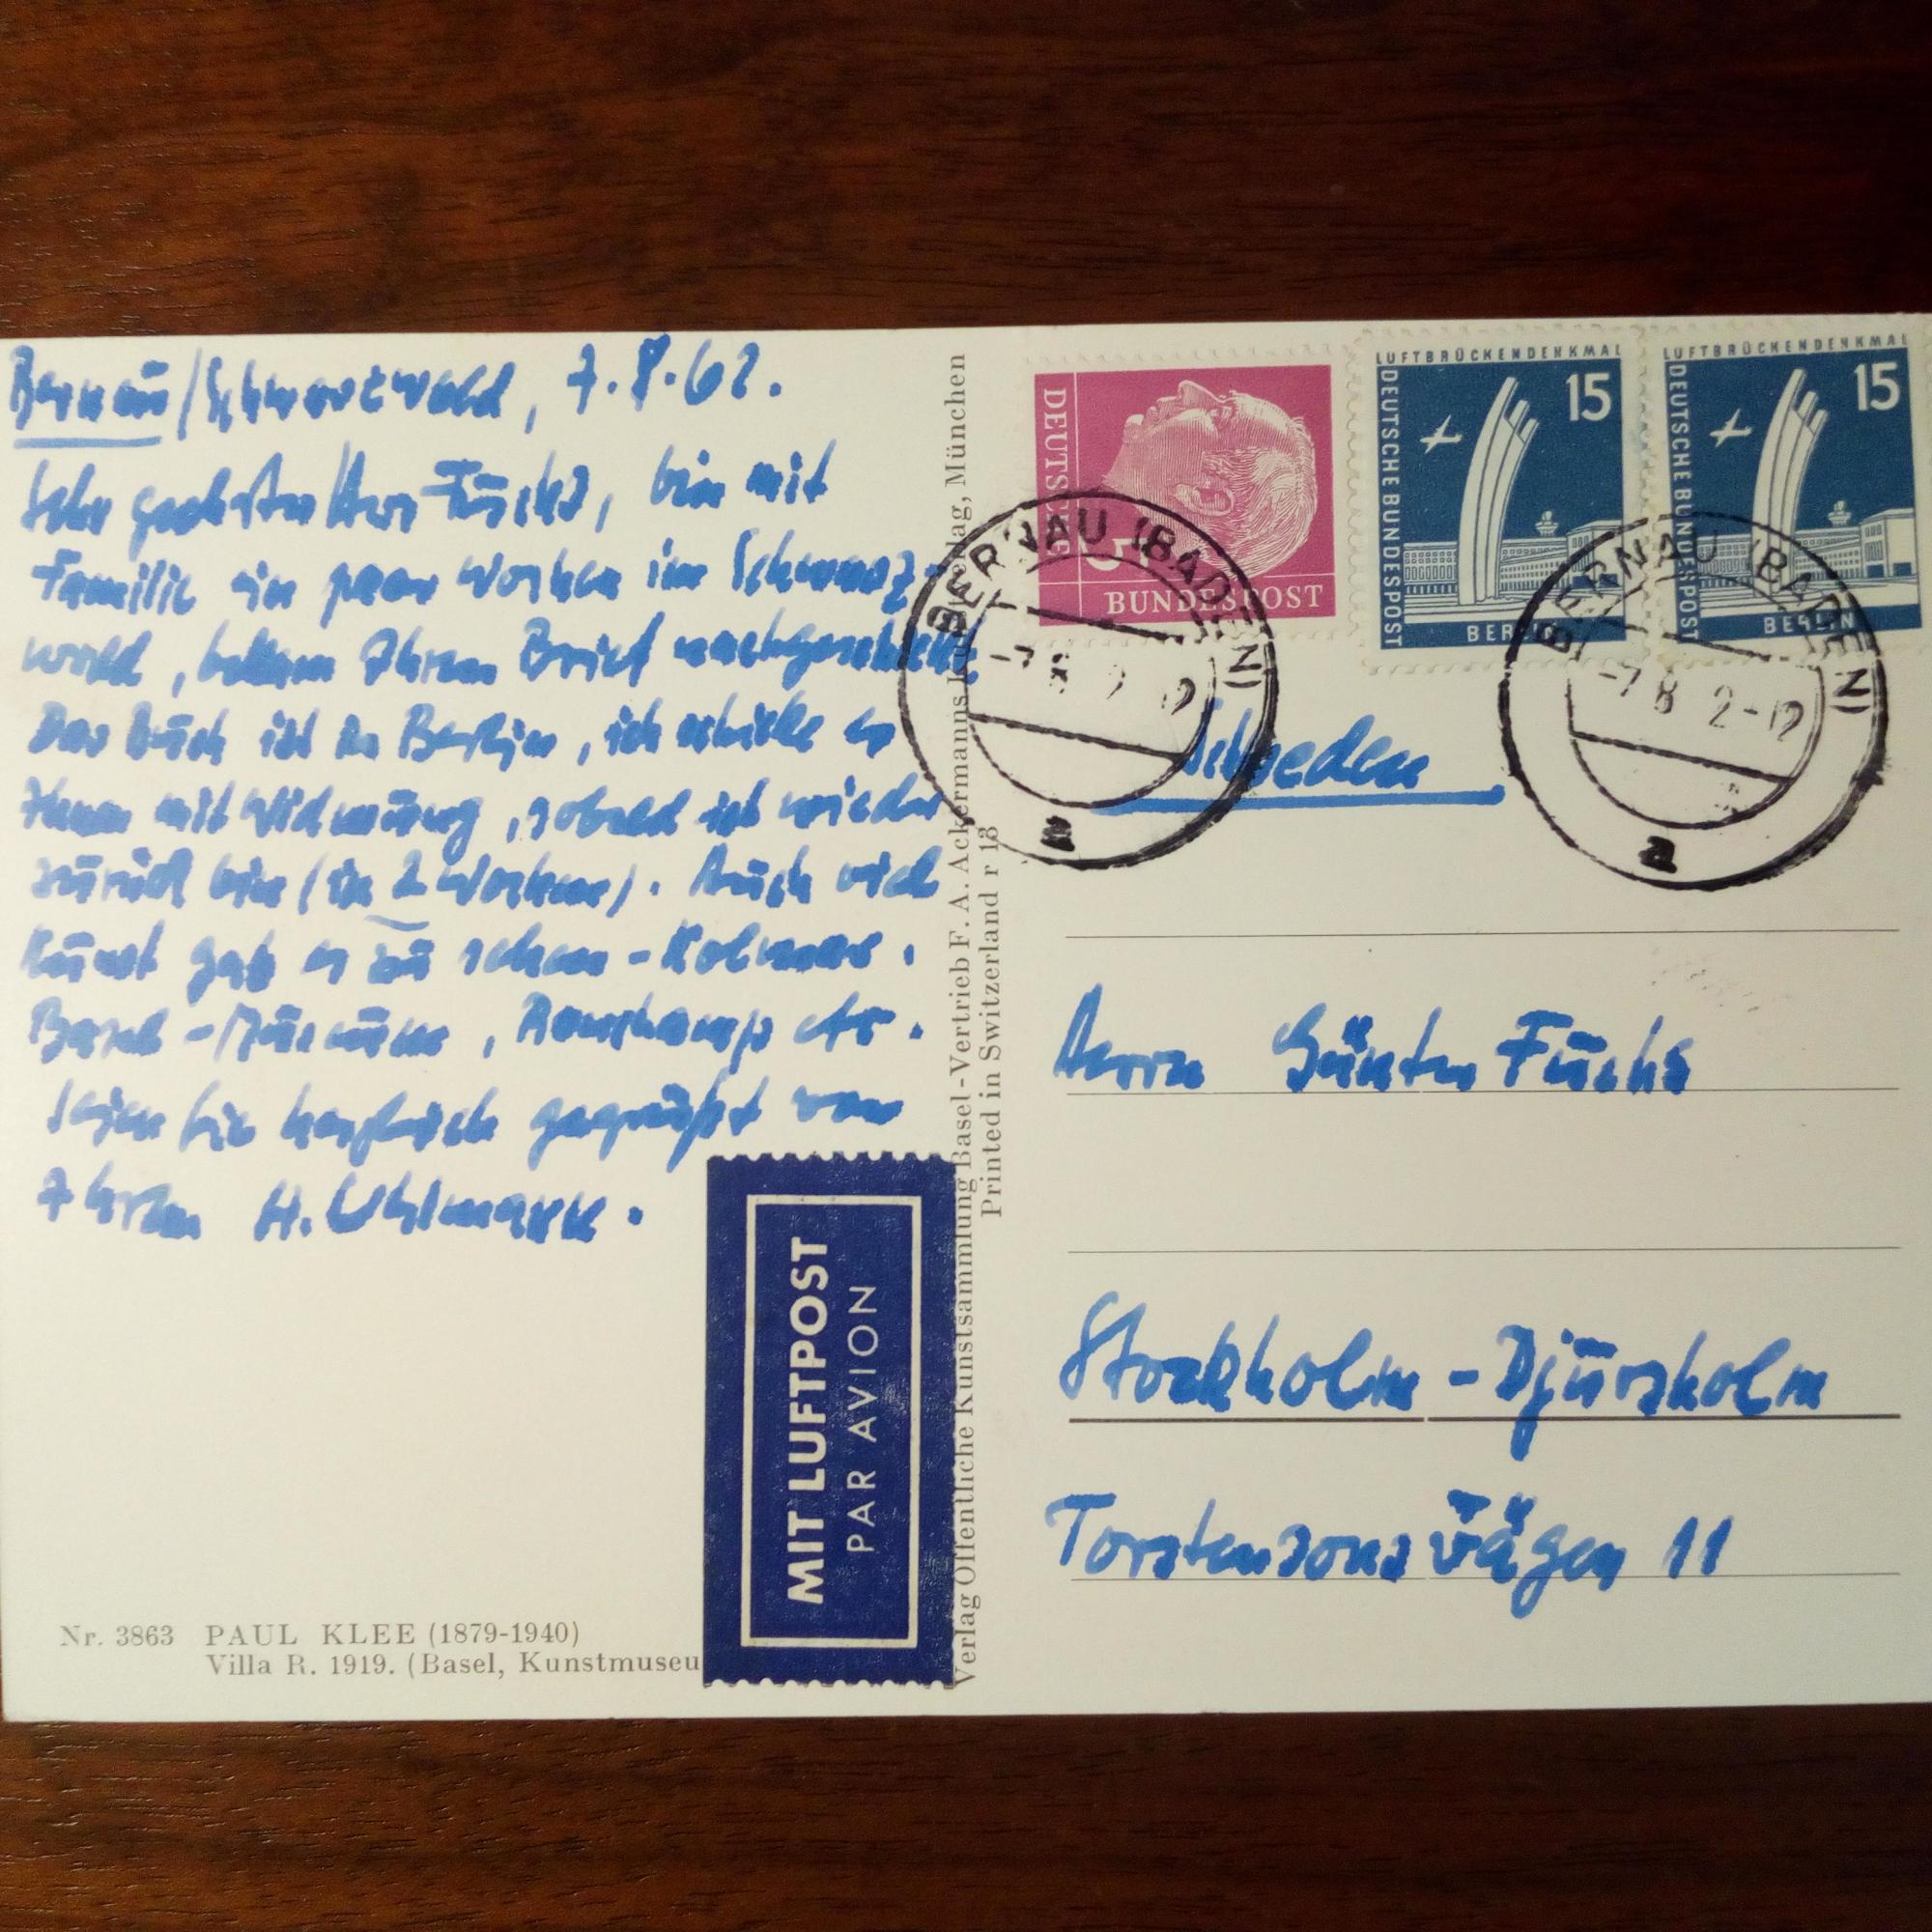 Bernau/Schwarzwald, 7.8.62.
Sehr geehrter Herr Fuchs, bin mit
Familie ein paar Wochen im Schwarz-
wald, bekam Ihren Brief nachgeschickt.
Das Buch ist in Berlin, ich schicke es
Ihnen mit Widmung, sobald ich wieder
zurück bin (in 2 Wochen). Auch viel
Kunst gab es zu sehen - Kolmar,
Basel - Museum, Ronchamp etc.
Seien Sie herzlich gegrüßt von
Ihrem H. Uhlmann.
Nr. 3863 PAUL KLEE (1879-1940)
Villa R. 1919. (Basel, Kunstmuseu
MIT LUFTPOST
PAR AVION
Verlag Öffentliche Kunstsammlung Basel-Vertrieb F. A. Ackermanns Kunstverlag, München
Printed in Switzerland r 13
DEUTSCHE
5
BUNDESPOST
LUFTBRÜCKENDENKMAL
15
DEUTSCHE BUNDESPOST
BERLIN
LUFTBRÜCKENDENKMAL
15
DEUTSCHE BUNDESPOST
BERLIN
BERNAU (BADEN)
-7 8 2-12
a
BERNAU (BADEN)
-7 8 2-12
a
Schweden
Herrn Günter Fuchs
Stockholm - Djursholm
Torstensonsvägen 11